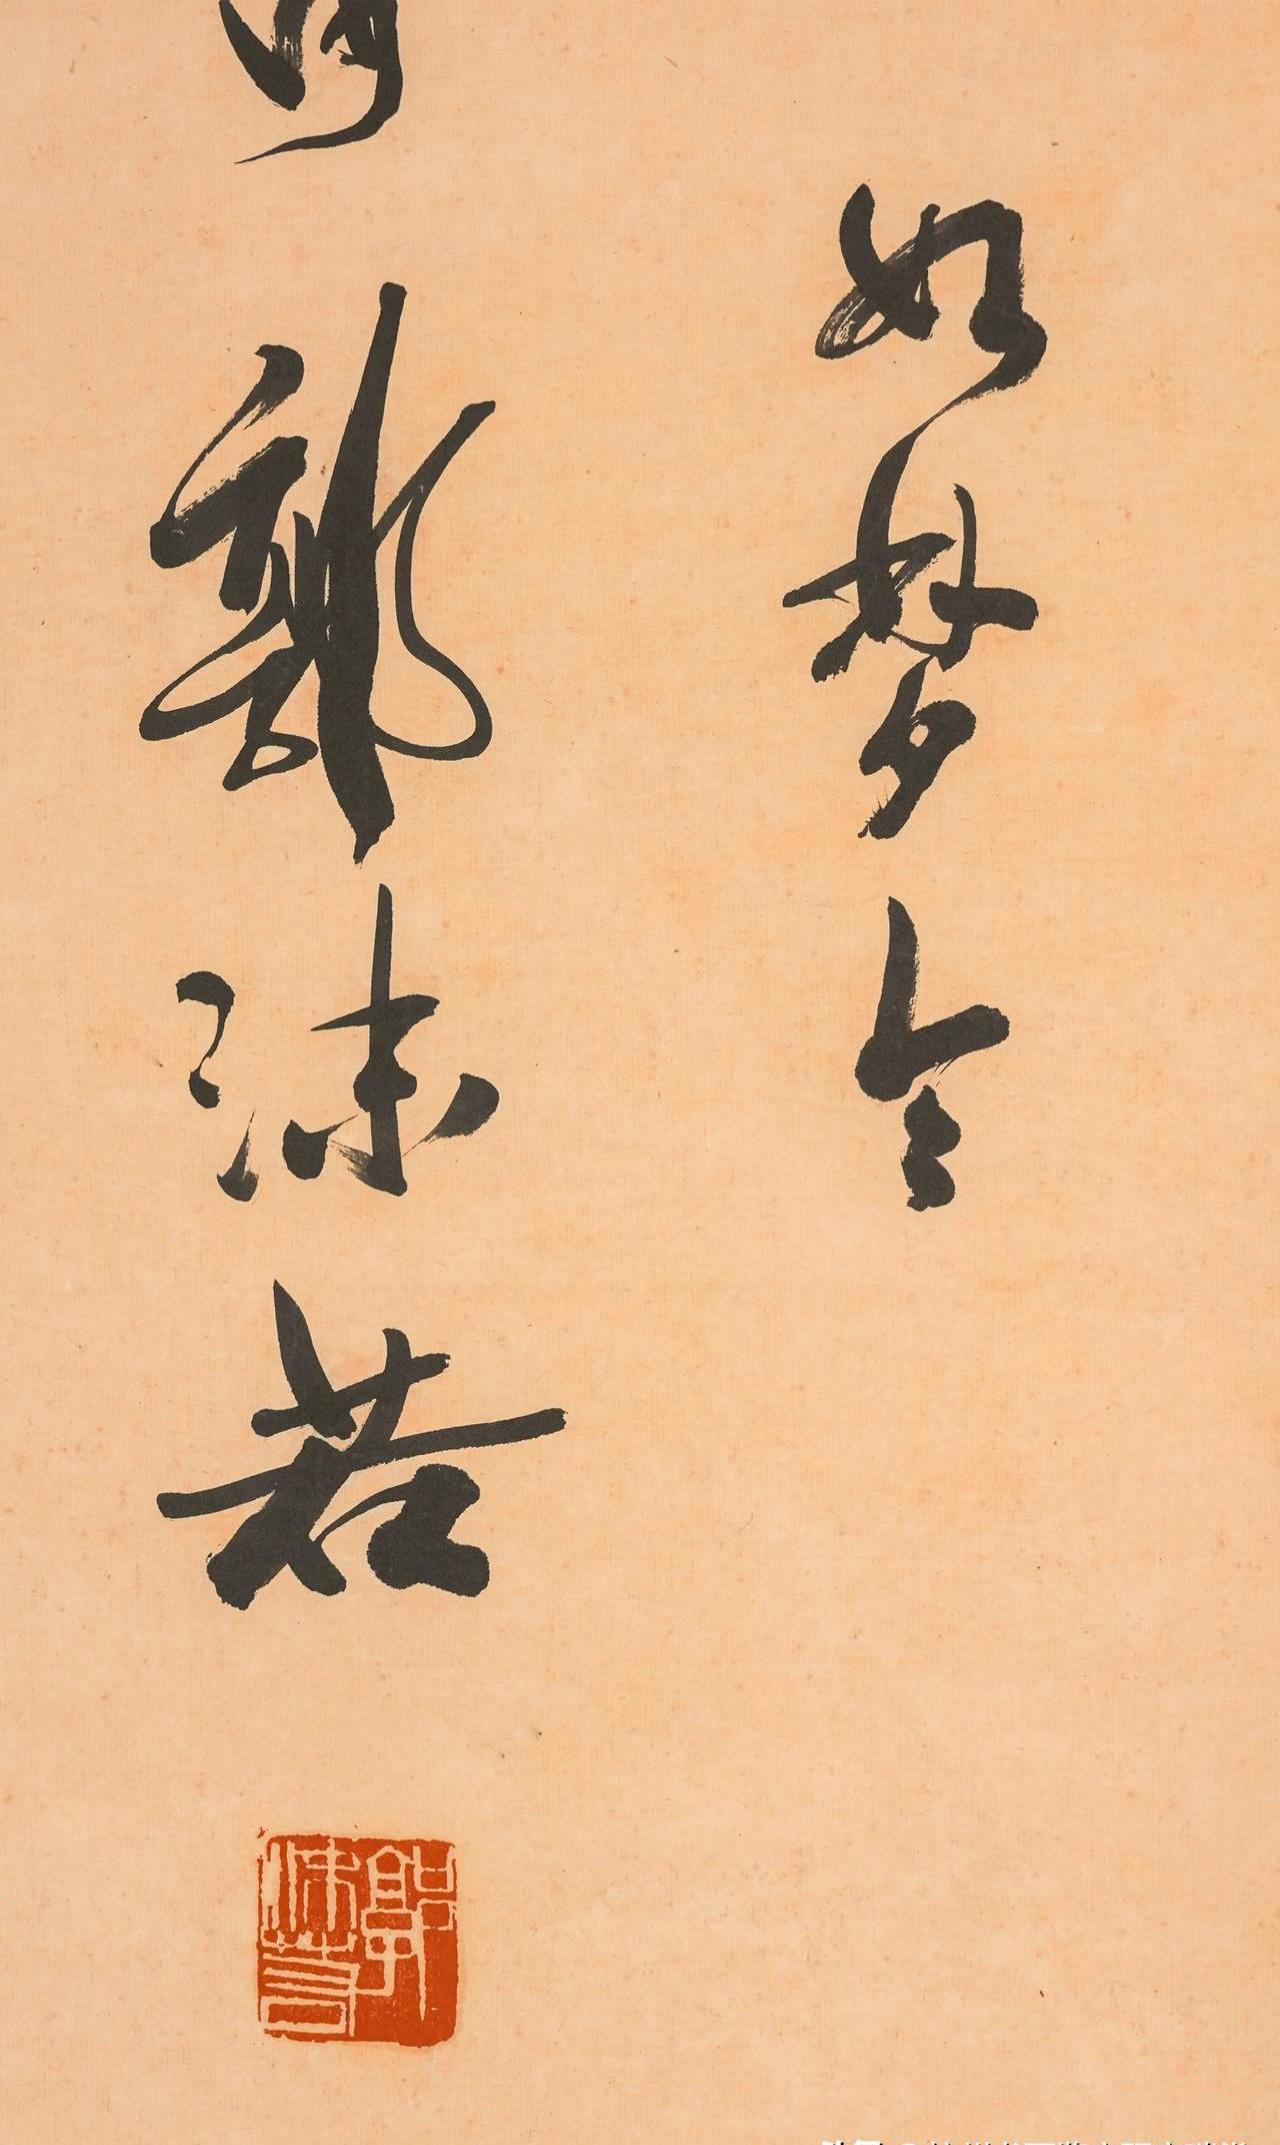 如梦令
郭沫若
郭沫若